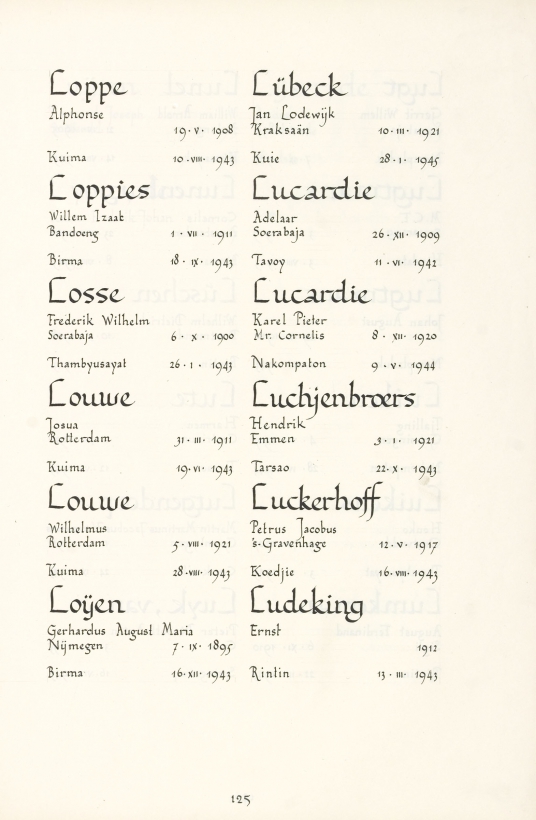 Loppe
Alphonse
19 · V · 1908
Kuima 10 · VIII · 1943
Loppies
Willem Izaak
Bandoeng 1 · VII · 1911
Birma 18 · IX · 1943
Losse
Frederik Wilhelm
Soerabaja 6 · X · 1900
Thambyusayat 26 · I · 1943
Louwe
Josua
Rotterdam 31 · III · 1911
Kuima 19 · VI · 1943
Louwe
Wilhelmus
Rotterdam 5 · VIII · 1921
Kuima 28 · VIII · 1943
Loÿen
Gerhardus August Maria
Nijmegen 7 · IX · 1895
Birma 16 · XII · 1943
Lübeck
Jan Lodewijk
Kraksaän 10 · III · 1921
Kuie 28 · I · 1945
Lucardie
Adelaar
Soerabaja 26 · XII · 1909
Tavoy 11 · VI · 1942
Lucardie
Karel Pieter
Mr. Cornelis 8 · XII · 1920
Nakompaton 9 · V · 1944
Luchjenbroers
Hendrik
Emmen 3 · I · 1921
Tarsao 22 · X · 1943
Luckerhoff
Petrus Jacobus
's-Gravenhage 12 · V · 1917
Koedjie 16 · VIII · 1943
Ludeking
Ernst
1912
Rintin 13 · III · 1943
125